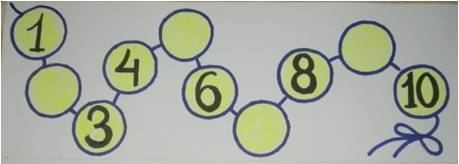 1
3
4
6
8
10